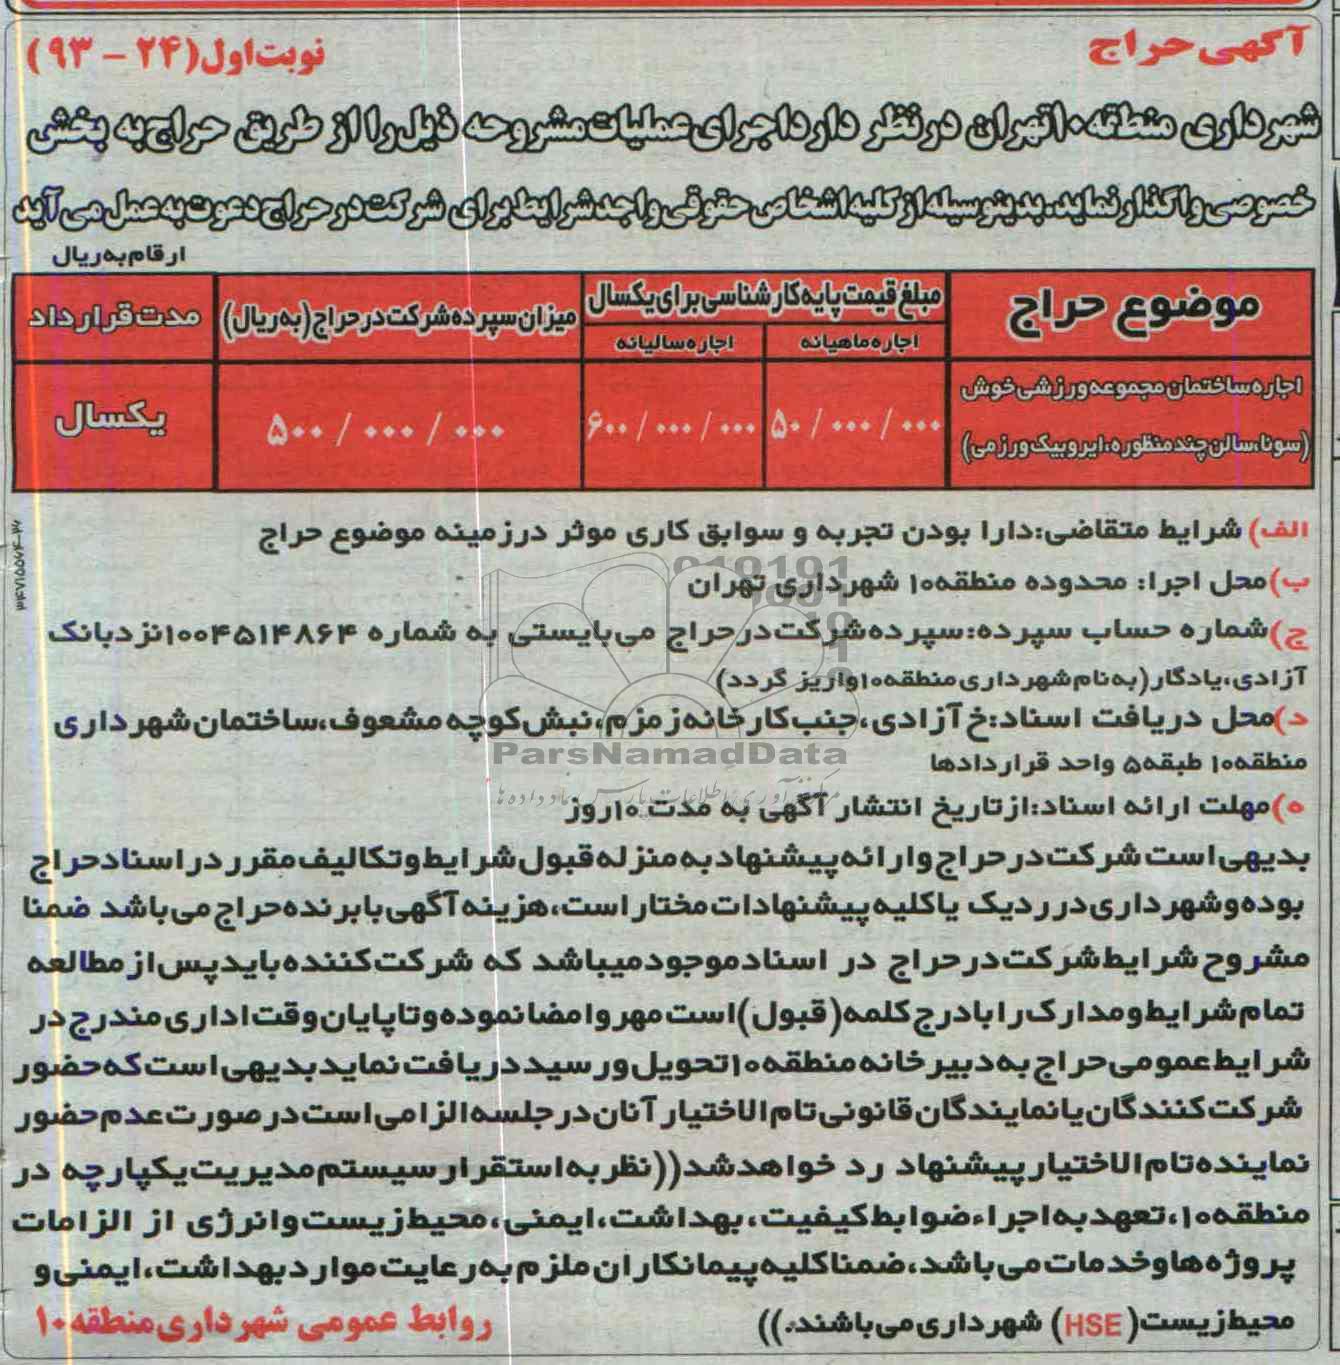 آگهی حراج
نوبت اول (۲۴ - ۹۳)
شهرداری منطقه ۱۰ تهران در نظر دارد اجرای عملیات مشروحه ذیل را از طریق حراج به بخش
خصوصی واگذار نماید، بدینوسیله از کلیه اشخاص حقوقی واجد شرایط برای شرکت در حراج دعوت به عمل می آید
ارقام به ریال
موضوع حراج
مبلغ قیمت پایه کارشناسی برای یکسال
میزان سپرده شرکت در حراج (به ریال)
مدت قرارداد
اجاره ماهیانه
اجاره سالیانه
اجاره ساختمان مجموعه ورزشی خوش
(سونا، سالن چند منظوره، ایروبیک ورزمی)
۵۰/۰۰۰/۰۰۰
۶۰۰/۰۰۰/۰۰۰
۵۰۰/۰۰۰/۰۰۰
یکسال
الف) شرایط متقاضی: دارا بودن تجربه و سوابق کاری موثر در زمینه موضوع حراج
ب) محل اجرا: محدوده منطقه ۱۰ شهرداری تهران
ج) شماره حساب سپرده: سپرده شرکت در حراج می بایستی به شماره ۱۰۰۴۵۱۴۸۶۴ نزد بانک
آزادی، یادگار (به نام شهرداری منطقه ۱۰ واریز گردد)
د) محل دریافت اسناد: خ آزادی، جنب کارخانه زمزم، نبش کوچه مشعوف، ساختمان شهرداری
منطقه ۱۰ طبقه ۵ واحد قراردادها
ه) مهلت ارائه اسناد: از تاریخ انتشار آگهی به مدت ۱۰ روز
بدیهی است شرکت در حراج و ارائه پیشنهاد به منزله قبول شرایط و تکالیف مقرر در اسناد حراج
بوده و شهرداری در رد یک یا کلیه پیشنهادات مختار است، هزینه آگهی با برنده حراج می باشد ضمنا
مشروح شرایط شرکت در حراج در اسناد موجود میباشد که شرکت کننده باید پس از مطالعه
تمام شرایط و مدارک را با درج کلمه (قبول) است مهر و امضا نموده و تا پایان وقت اداری مندرج در
شرایط عمومی حراج به دبیرخانه منطقه ۱۰ تحویل و رسید دریافت نماید بدیهی است که حضور
شرکت کنندگان یا نمایندگان قانونی تام الاختیار آنان در جلسه الزامی است در صورت عدم حضور
نماینده تام الاختیار پیشنهاد رد خواهد شد ((نظر به استقرار سیستم مدیریت یکپارچه در
منطقه ۱۰، تعهد به اجراء ضوابط کیفیت، بهداشت، ایمنی، محیط زیست و انرژی از الزامات
پروژه ها و خدمات می باشد، ضمنا کلیه پیمانکاران ملزم به رعایت موارد بهداشت، ایمنی و
محیط زیست (HSE) شهرداری می باشند.))
روابط عمومی شهرداری منطقه ۱۰
ParsNamadData